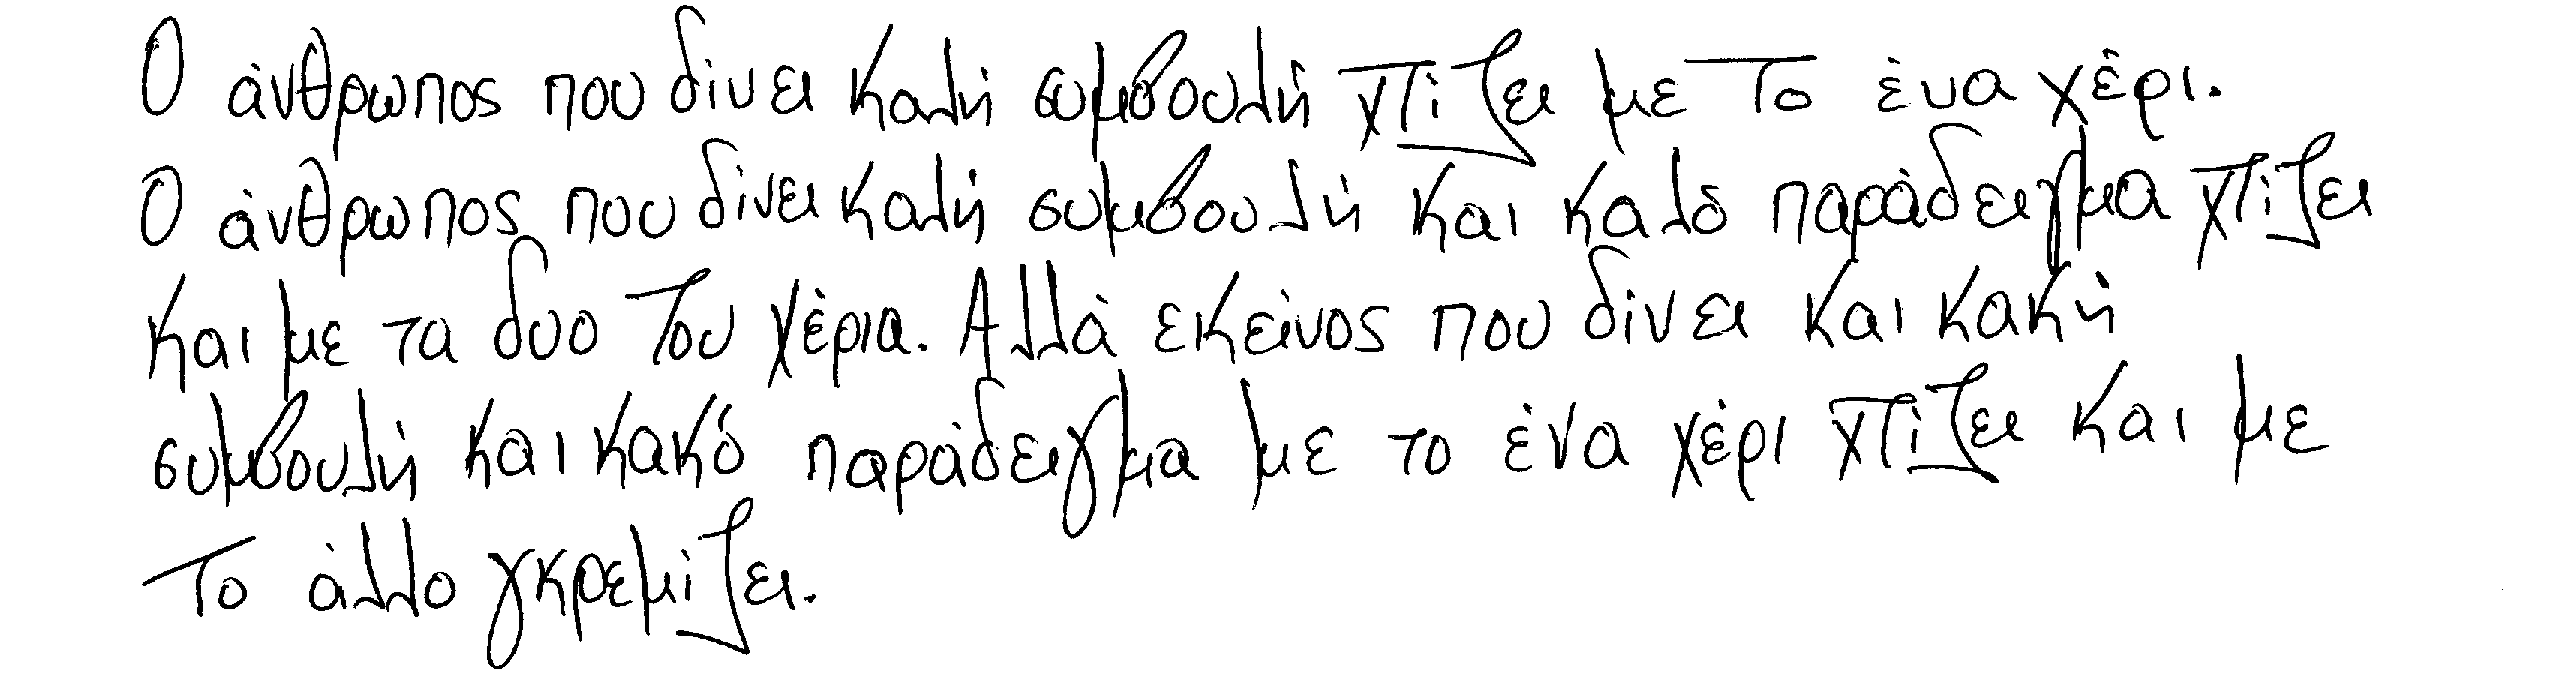 Ο άνθρωπος που δίνει καλή συμβουλή χτίζει με το ένα χέρι.
Ο άνθρωπος που δίνει καλή συμβουλή και καλό παράδειγμα χτίζει
και με τα δυο του χέρια. Αλλά εκείνος που δίνει και κακή
συμβουλή και κακό παράδειγμα με το ένα χέρι χτίζει και με
το άλλο γκρεμίζει.